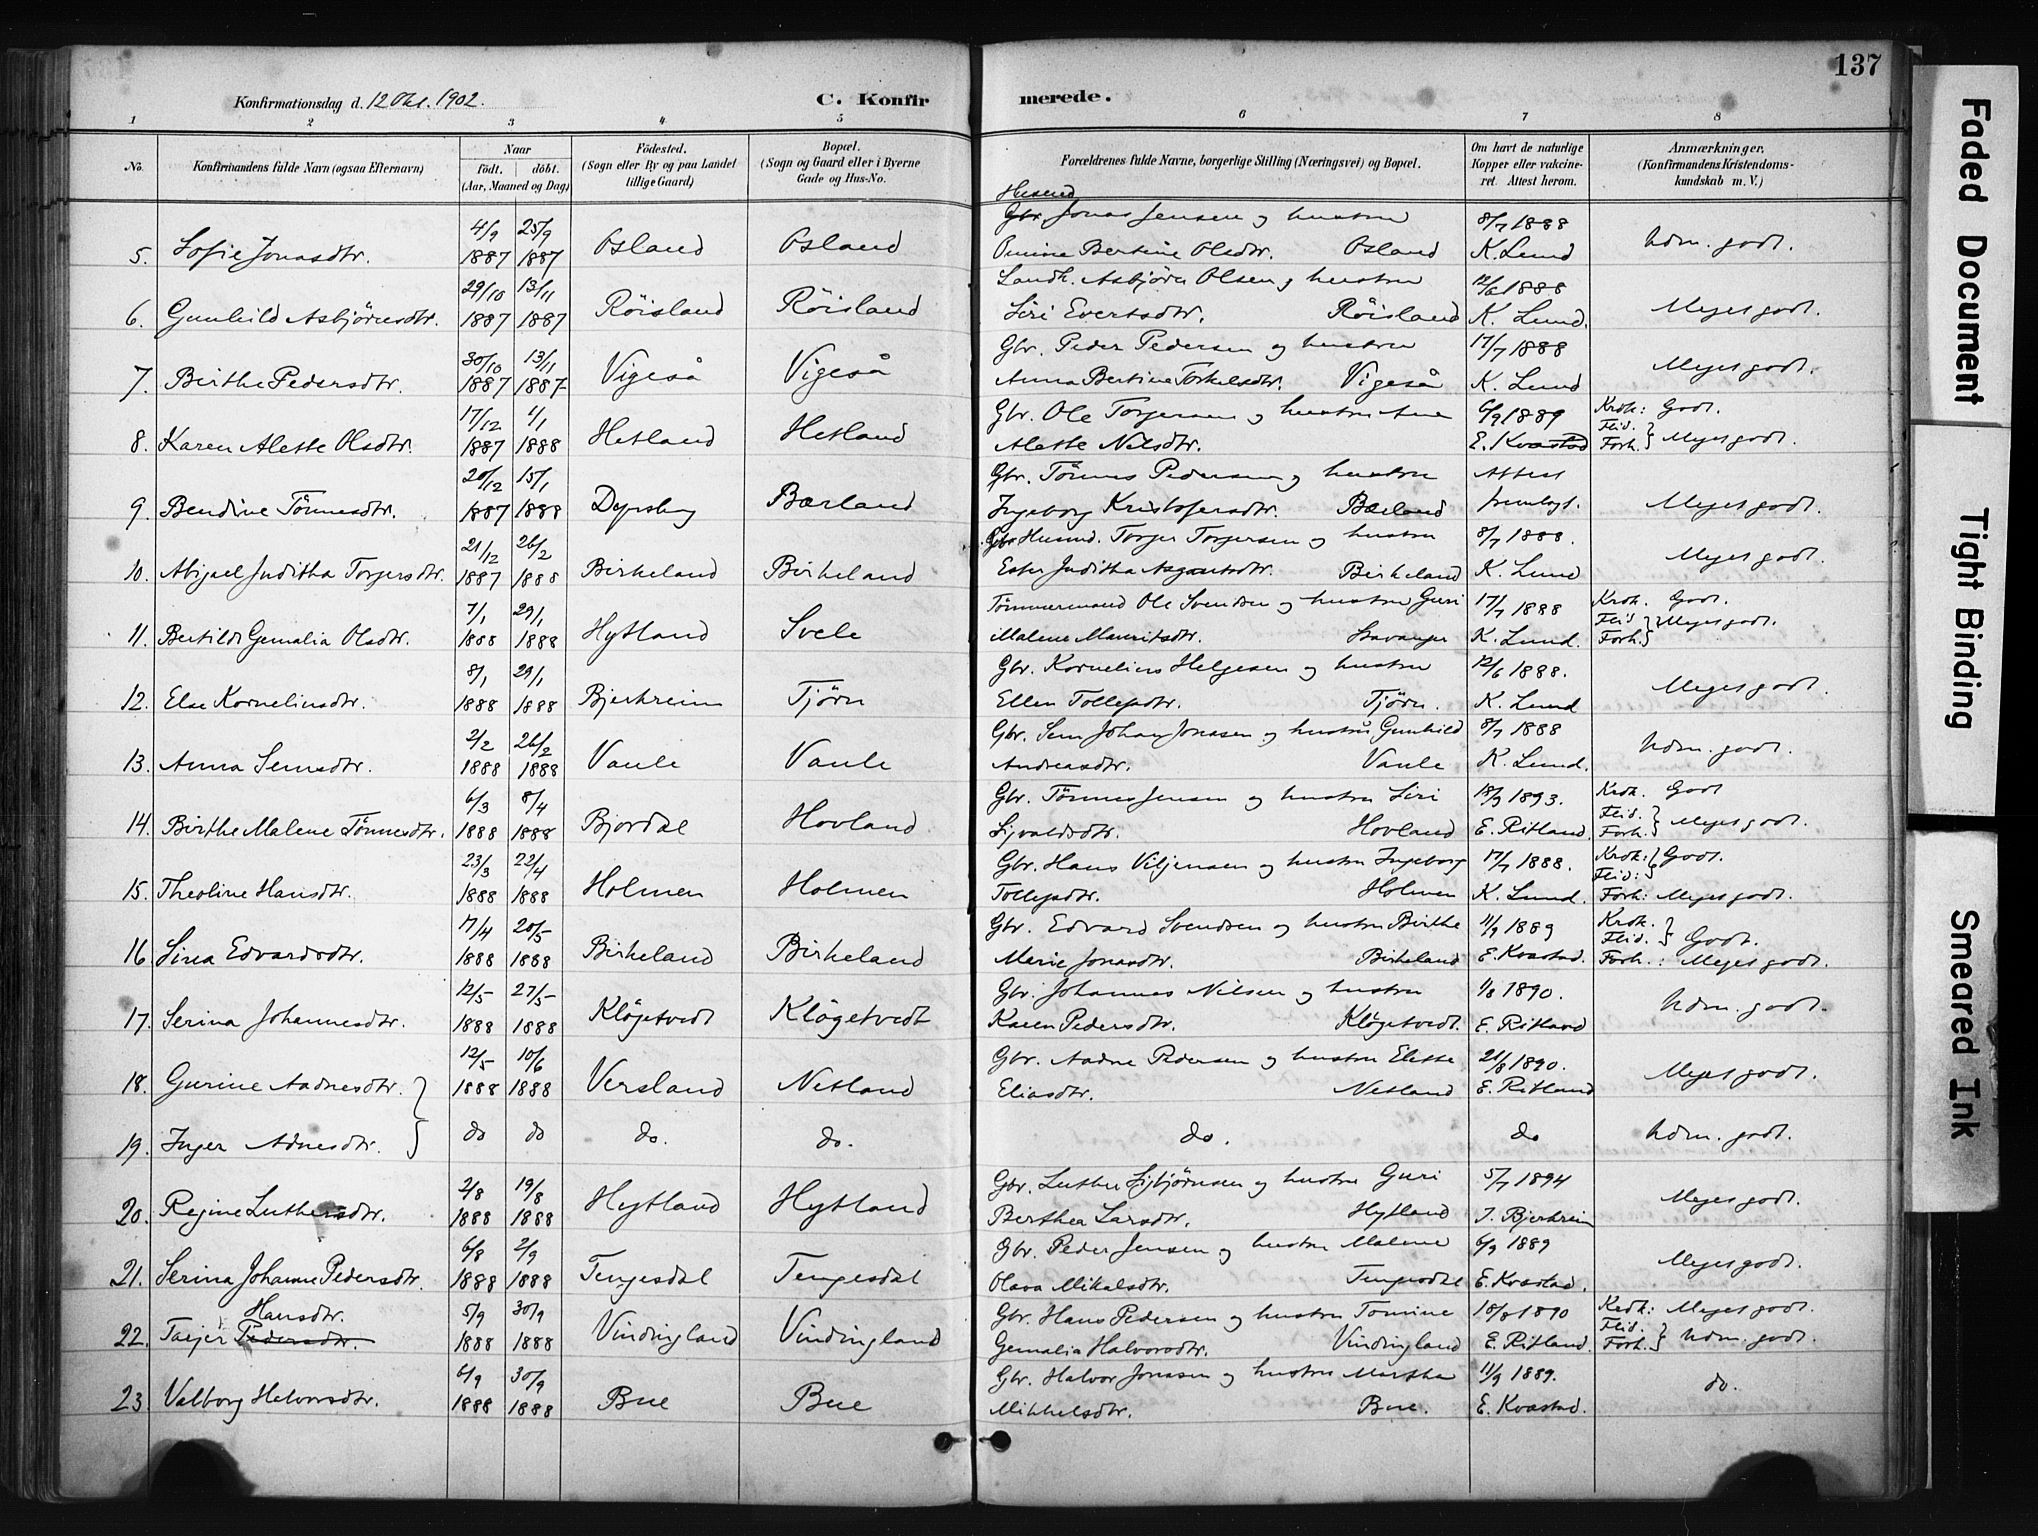 137
Konfirmationsdag d. 12 Okt. 1902.
C. Konfirmerede.
1 2 3 4 5 6 7 8
No. Konfirmandens fulde Navn (ogsaa Efternavn) Naar födt. döbt. (Aar, Maaned og Dag) Födested. (Sogn eller By og paa Landet tillige Gaard) Bopæl. (Sogn og Gaard eller i Byerne Gade og Hus-No. Forældrenes fulde Navne, borgerlige Stilling (Næringsvei) og Bopæl. Om havt de naturlige Kopper eller vakcineret. Attest herom. Anmærkninger. (Konfirmandens Kristendomskundskab m. V.)
Husmd
4/9 25/9 Gbr. Jonas Jensen og hustru 8/7 1888
5. Sofie Jonasdtr. 1887 1887 Osland Osland Omine Bertine Olsdtr. Osland K. Lund Udm. godt.
29/10 13/11 Landh. Asbjörn Olsen og hustru 12/6 1888
6. Gunhild Asbjörnsdtr. 1887 1887 Röisland Röisland Siri Evertsdtr. Röisland K. Lund. Meget godt.
30/10 13/11 Gbr. Peder Pedersen og hustru 17/7 1888
7. Birthe Pedersdtr. 1887 1887 Vigeså Vigeså Anna Bertine Torkelsdtr. Vigeså K. Lund Meget godt.
17/12 1/1 Gbr. Ole Torgersen og hustru Ane 6/9 1889 Krdk: Godt.
8. Karen Alette Olsdtr. 1887 1888 Hetland Hetland Alette Nilsdtr. E. Kvastad Flid. Forh. } Meget godt.
20/12 15/1 Gbr. Tönnes Pedersen og hustru Attest
9. Bendine Tönnesdtr. 1887 1888 Dypsby Bærland Ingeborg Kristofersdtr. Bærland fremlagt. Meget godt.
21/12 26/2 Gbr Husmd. Torger Torgersen og hustru 8/7 1888.
10. Abigael Juditha Torgersdtr. 1887 1888 Birkeland Birkeland Ester Juditha Asgautsdtr. Birkeland K. Lund Meget godt.
7/1 29/1 Tömmermand Ole Svendsen og hustru Guri 17/7 1888 Krdk. Godt.
11. Bertilde Gemalia Olsdtr. 1888 1888 Hytland Svele Malene Mauritsdtr. Stavanger K. Lund. Flid Forh. } Meget godt.
8/1 29/1 Gbr. Kornelius Helgesen og hustru 12/6 1888.
12. Else Korneliusdtr. 1888 1888 Bjerkreim Tjörn Ellen Tollefsdtr. Tjörn. K. Lund Meget godt.
2/2 26/2 Gbr. Sem Johan Jonasen og hustru Gunhild 8/7 1888
13. Anna Semsdtr. 1888 1888 Vaule Vaule Andreasdtr. Vaule K. Lund. Udm. godt.
6/3 8/4 Gbr. Tönnes Jensen og hustru Siri 18/9 1893. Krdk. Godt
14. Birthe Malene Tönnesdtr. 1888 1888 Bjordal Hovland Sigvaldsdtr. Hovland E. Ritland. Flid. Forh. } Meget godt.
23/3 22/4 Gbr. Hans Viljensen og hustru Ingeborg 17/7 1888. Krdk: Flid: } Godt.
15. Theoline Hansdtr. 1888 1888 Holmen Holmen Tollefsdtr. Holmen K. Lund. Forh: Meget godt.
17/4 20/5 Gbr. Edvard Svendsen og hustru Birthe 11/9 1889 Krdk. Flid. } Godt.
16. Sina Edvardsdtr. 1888 1888 Birkeland Birkeland Marie Jonasdtr. Birkeland E. Kvastad. Forh.: Meget godt.
12/5 27/5 Gbr. Johannes Nilsen og hustru 1/8 1890.
17. Serina Johannesdtr. 1888 1888 Klögetvedt Klögetvedt Karen Pedersdtr. Klögetvedt. E. Ritland Udm. godt.
12/5 10/6 Gbr. Aadne Pedersen og hustru Elette 21/8 1890.
18. Gurine Aadnesdtr. 1888 1888 Versland Netland Eliasdtr. Netland E. Ritland Meget godt.
19. Inger Adnesdtr. do do do. do. do. do Udm. godt.
2/8 19/8 Gbr. Luther Sigbjörnsen og hustru Guri 5/7 1894
20. Regine Luthersdtr. 1888 1888 Hytland Hytland Berthea Larsdtr. Hytland T. Bjerkreim Meget godt.
6/8 2/9 Gbr. Peder Jensen og hustru Malene 6/9 1889
21. Serina Johanne Pedersdtr. 1888 1888 Tengesdal Tengesdal Olava Mikalsdtr. Tengesdal E. Kvastad. Meget godt.
Hansdtr. 5/9 30/9 Gbr. Hans Pedersen og hustru Tomine 18/8 1890 Krdk: Meget godt.
22. Taijer Pedersdtr. 1888 1888 Vindingland Vindingland Gemalia Halvorsdtr. Vindingland E. Ritland. Flid. Forh. } Udm. godt.
6/9 30/9 Gbr. Halvor Jonasen og hustru Martha 11/9 1889.
23. Valborg Halvorsdtr. 1888 1888 Bue Bue Mikkelsdtr. Bue. E. Kvastad. do.
Faded Document
Tight Binding
Smeared Ink